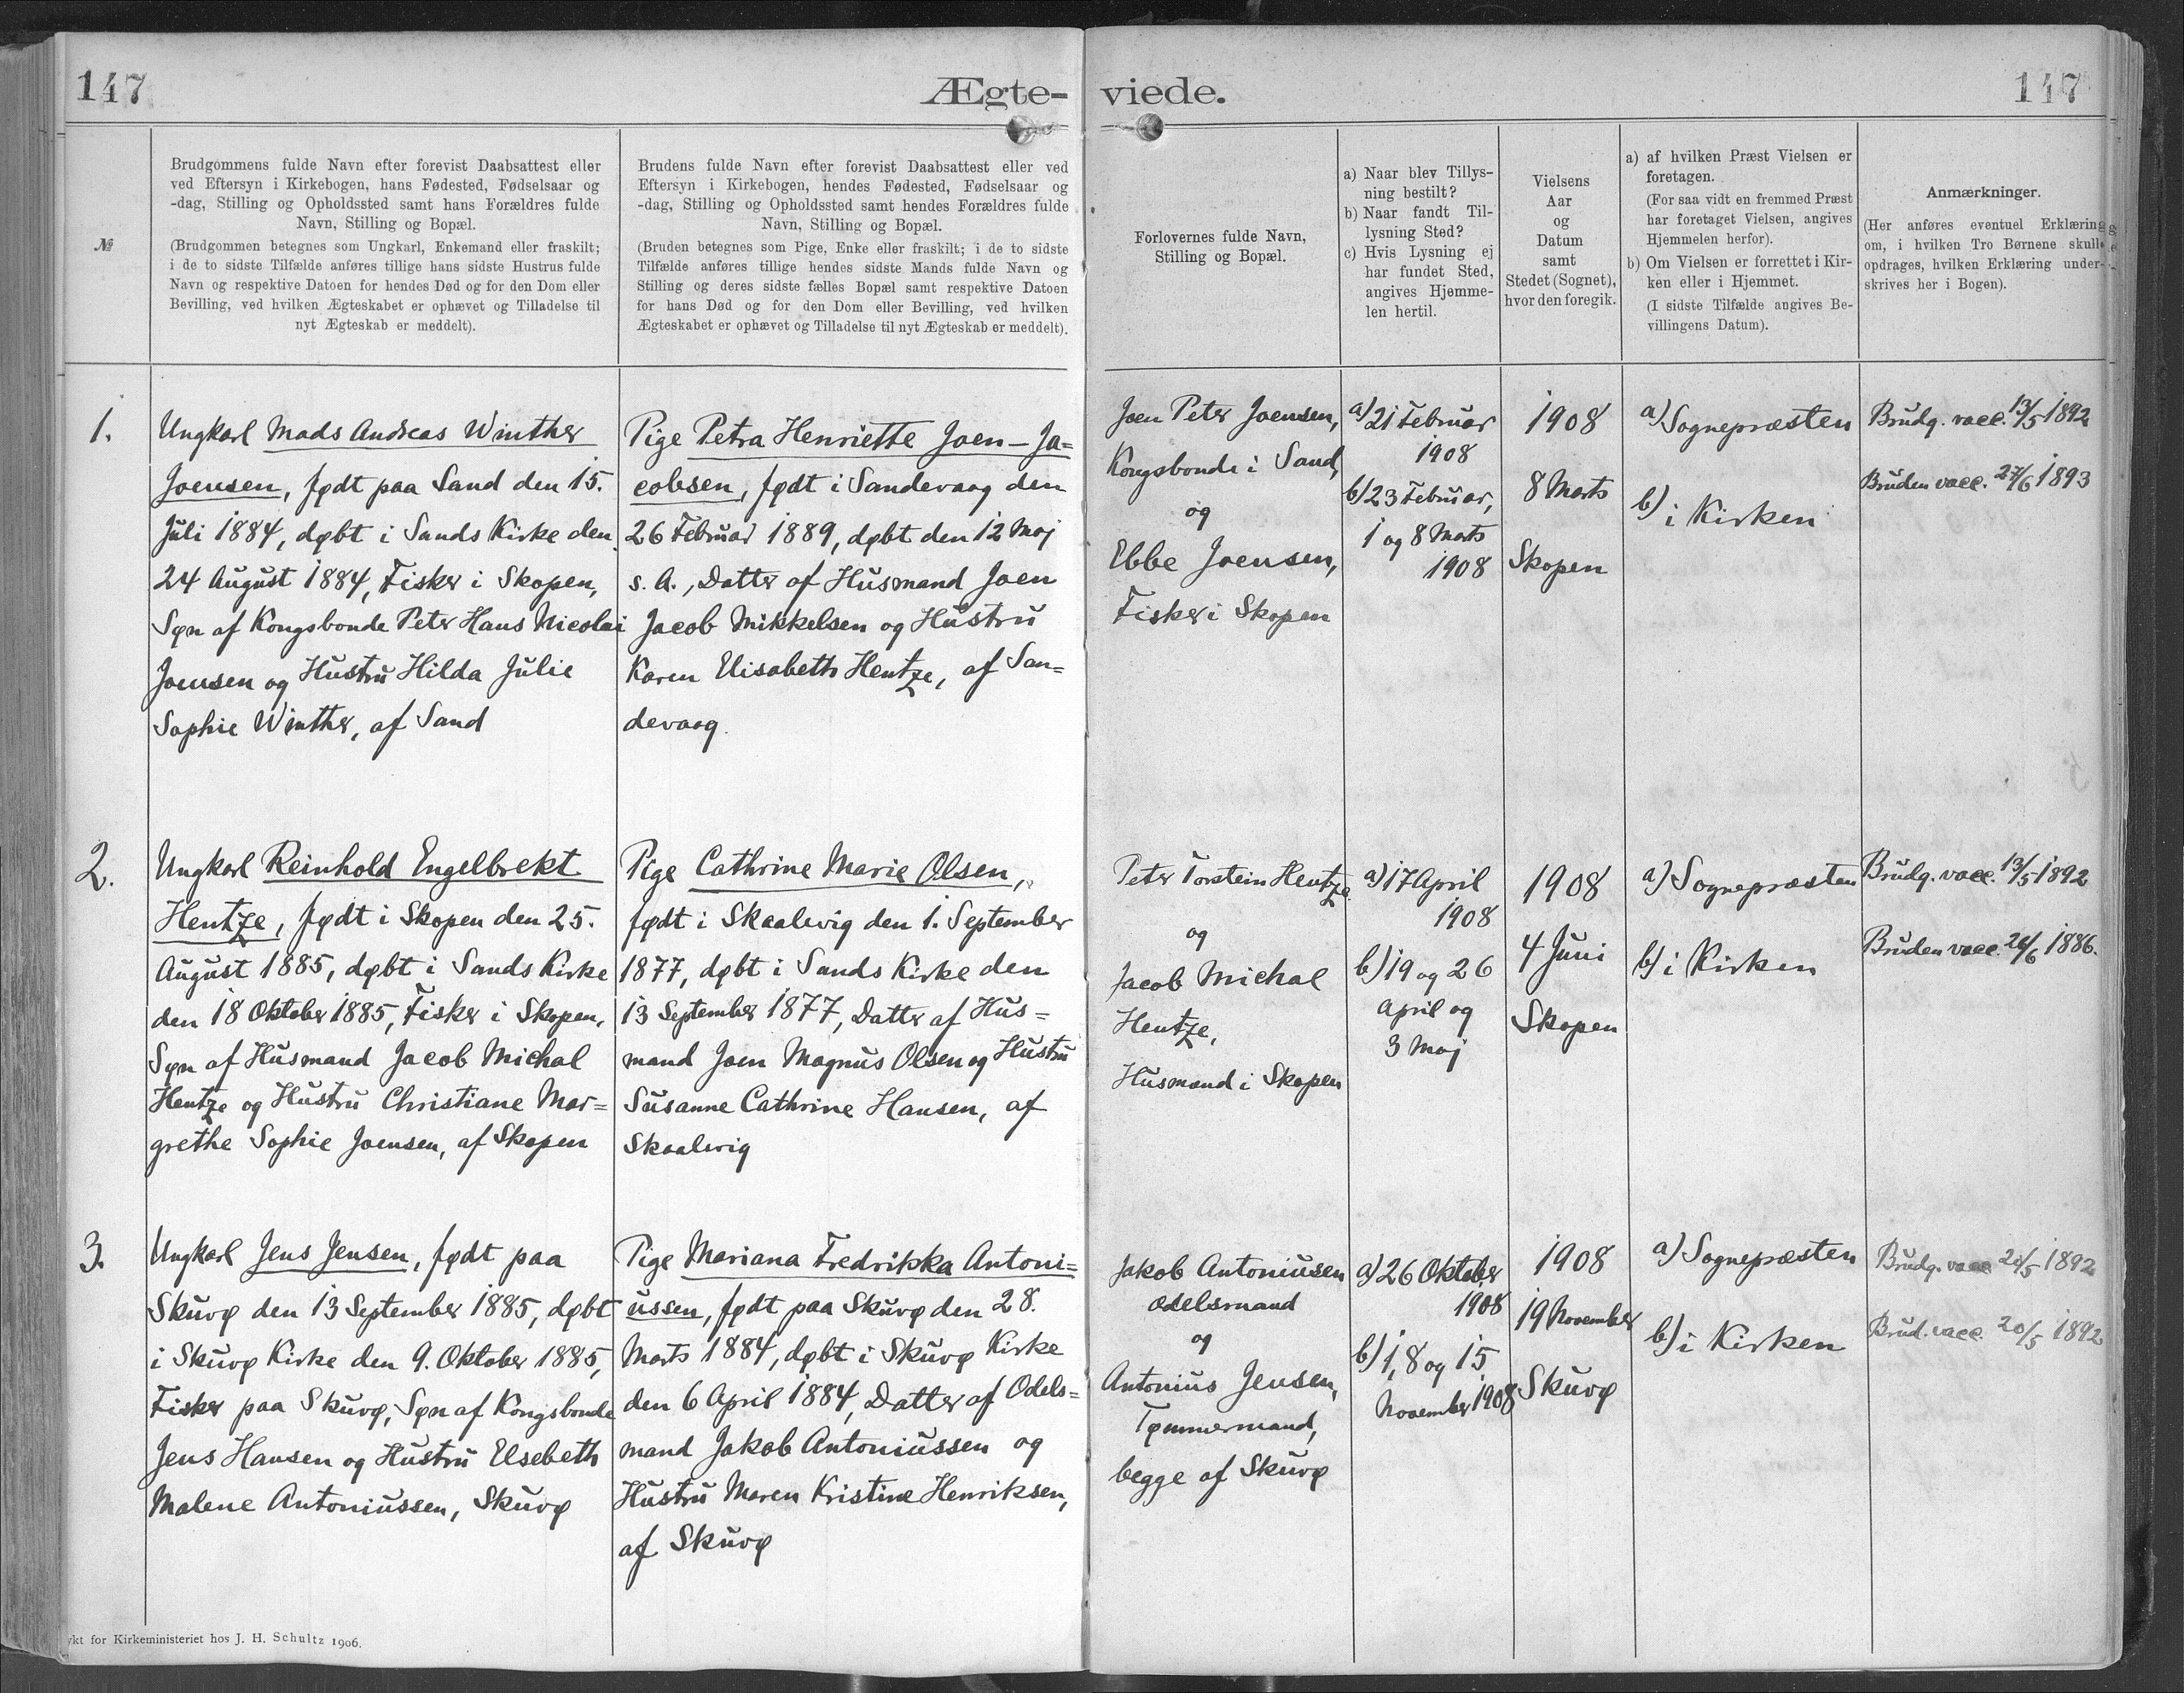 147
Ægte-
viede.
147
№
Brudgommens fulde Navn efter forevist Daabsattest eller
ved Eftersyn i Kirkebogen, hans Fødested, Fødselsaar og
-dag, Stilling og Opholdssted samt hans Forældres fulde
Navn, Stilling og Bopæl.
(Brudgommen betegnes som Ungkarl, Enkemand eller fraskilt;
i de to sidste Tilfælde anføres tillige hans sidste Hustrus fulde
Navn og respektive Datoen for hendes Død og for den Dom eller
Bevilling, ved hvilken Ægteskabet er ophævet og Tilladelse til
nyt Ægteskab er meddelt).
Brudens fulde Navn efter forevist Daabsattest eller ved
Eftersyn i Kirkebogen, hendes Fødested, Fødselsaar og
-dag, Stilling og Opholdssted samt hendes Forældres fulde
Navn, Stilling og Bopæl.
(Bruden betegnes som Pige, Enke eller fraskilt; i de to sidste
Tilfælde anføres tillige hendes sidste Mands fulde Navn og
Stilling og deres sidste fælles Bopæl samt respektive Datoen
for hans Død og for den Dom eller Bevilling, ved hvilken
Ægteskabet er ophævet og Tilladelse til nyt Ægteskab er meddelt).
Forlovernes fulde Navn,
Stilling og Bopæl.
a) Naar blev Tillys-
ning bestilt?
b) Naar fandt Til-
lysning Sted?
c) Hvis Lysning ej
har fundet Sted,
angives Hjemme-
len hertil.
Vielsens
Aar
og
Datum
samt
Stedet (Sognet),
hvor den foregik.
a) af hvilken Præst Vielsen er
foretagen.
(For saa vidt en fremmed Præst
har foretaget Vielsen, angives
Hjemmelen herfor).
b) Om Vielsen er forrettet i Kir-
ken eller i Hjemmet.
(I sidste Tilfælde angives Be-
villingens Datum).
Anmærkninger.
(Her anføres eventuel Erklæring
om, i hvilken Tro Børnene skulle
opdrages, hvilken Erklæring under-
skrives her i Bogen).
1.
Ungkarl Mads Andreas Winther
Joensen, født paa Sand den 15.
Juli 1884, døbt i Sands Kirke den
24 August 1884, Fisker i Skopen,
Søn af Kongsbonde Peter Hans Nicolai
Joensen og Hustru Hilda Julie
Sophie Winther, af Sand
Pige Petra Henriette Joen-Ja=
cobsen, født i Sandevaag den
26 Februar 1889, døbt den 12 Maj
s. A., Datter af Husmand Joen
Jacob Mikkelsen og Hustru
Karen Elisabeth Hentze, af San=
devaag.
Joen Peter Joensen,
Kongsbonde i Sand,
og
Ebbe Joensen,
Fisker i Skopen
a) 21 Februar
1908
b) 23 Februar,
1 og 8 Marts
1908
1908
8 Marts
Skopen
a) Sognepræsten
b) i Kirken
Brudg. vacc. 13/5 1892
Bruden vacc. 27/6 1893
2.
Ungkarl Reinhold Engelbrekt
Hentze, født i Skopen den 25.
August 1885, døbt i Sands Kirke
den 18 Oktober 1885, Fisker i Skopen,
Søn af Husmand Jacob Michal
Hentze og Hustru Christiane Mar=
grethe Sophie Joensen, af Skopen
Pige Cathrine Marie Olsen,
født i Skaalevig den 1. September
1877, døbt i Sands Kirke den
13 September 1877, Datter af Hus=
mand Joen Magnus Olsen og Hustru
Susanne Cathrine Hansen, af
Skaalevig
Peter Torstein Hentze
og
Jacob Michal
Hentze,
Husmand i Skopen
a) 17 April
1908
b) 19 og 26
April og
3 Maj
1908
4 Juni
Skopen
a) Sognepræsten
b) i Kirken
Brudg. vacc. 13/5 1892
Bruden vacc. /6 1886.
3.
Ungkarl Jens Jensen, født paa
Skuvø den 13 September 1885, døbt
i Skuvø Kirke den 9. Oktober 1885,
Fisker paa Skuvø, Søn af Kongsbonde
Jens Hansen og Hustru Elsebeth
Malene Antoniussen, Skuvø
Pige Mariana Fredrikka Antoni=
ussen, født paa Skuvø den 28.
Marts 1884, døbt i Skuvø Kirke
den 6 April 1884, Datter af Odels=
mand Jakob Antoniussen og
Hustru Maren Kristine Henriksen,
af Skuvø
Jakob Antoniusen
Odelsmand
og
Antonius Jensen,
Tømmermand,
begge af Skuvø
a) 26 Oktober
1908
b) 1, 8 og 15
November 1908
1908
19 November
Skuvø
a) Sognepræsten
b) i Kirken
Brudg. vacc. 20/5 1892
Brud. vacc. 20/5 1892
ykt for Kirkeministeriet hos J. H. Schultz 1906.